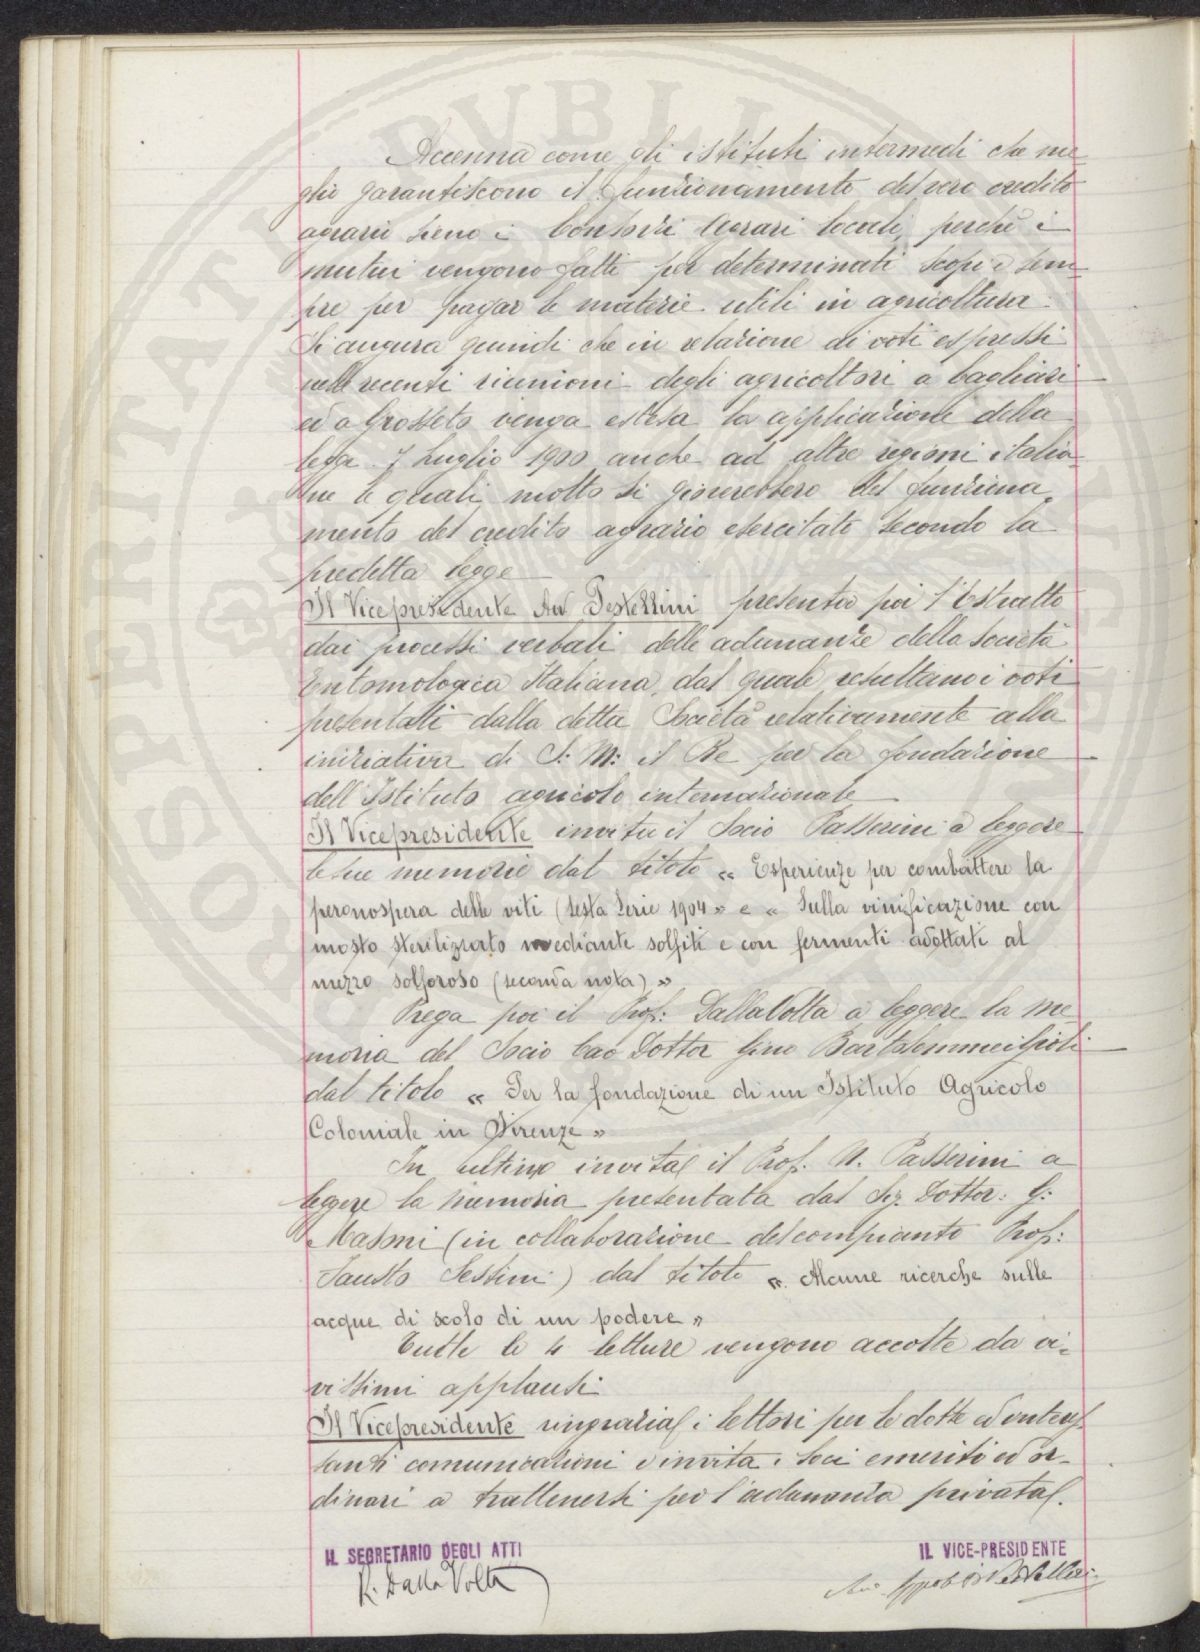 Accenna come gli istituti intermedi che me
glio garantiscono il funzionamento del vero credito
agrario sieno i Consorzi Agrari locali, perchè i
mutui vengono fatti per determinati scopi e sem-
pre per pagar le materie utili in agricoltura.
Si augura quindi che in relazione di voti espressi
nelle recenti riunioni degli agricoltori a Cagliari
ed a Grosseto venga estesa la applicazione della
legge 7 Luglio 1900 anche ad altre regioni italia-
ne le quali molto si gioverebbero del funziona
mento del credito agrario esercitato secondo la
predetta legge
Il Vicepresidente Avv Pestellini presenta poi l'Estratto
dai processi verbali delle adunanze della Società
Entomologica Italiana, dal quale resultano i voti
presentati dalla detta Società relativamente alla
iniziativa di S: M: il Re per la fondazione
dell'Istituto agricolo internazionale
Il Vicepresidente invita il Socio Passerini a leggere
le sue memorie dal titolo « Esperienze per combattere la
peronospera delle viti (sesta Serie 1904 » e « Sulla vinificazione con
mosto sterilizzato mediante solfiti e con fermenti adattati al
mezzo solforoso (seconda nota) »
Prega poi il Prof: Dalla Volta a leggere la me
moria del Socio Cav Dottor Gino Bartolommei Gioli
dal titolo « Per la fondazione di un Istituto Agricolo
Coloniale in Firenze »
In ultimo invita il Prof. N. Passerini a
leggere la memoria presentata dal Sig. Dottor: G:
Masoni (in collaborazione del compianto Prof:
Fausto Sestini) dal titolo « Alcune ricerche sulle
acque di scolo di un podere »
Tutte le 4 letture vengono accolte da vi-
vissimi applausi
Il Vicepresidente ringrazia i lettori per le dotte ed interes
santi comunicazioni e invita i Soci emeriti ed or-
dinari a trattenersi per l'adunanza privata.
IL SEGRETARIO DEGLI ATTI
IL VICE-PRESIDENTE
R. Dalla Volta
Avv. Ippolito Pestellini
PROSPERITATI PVBLICAE AVGENDAE